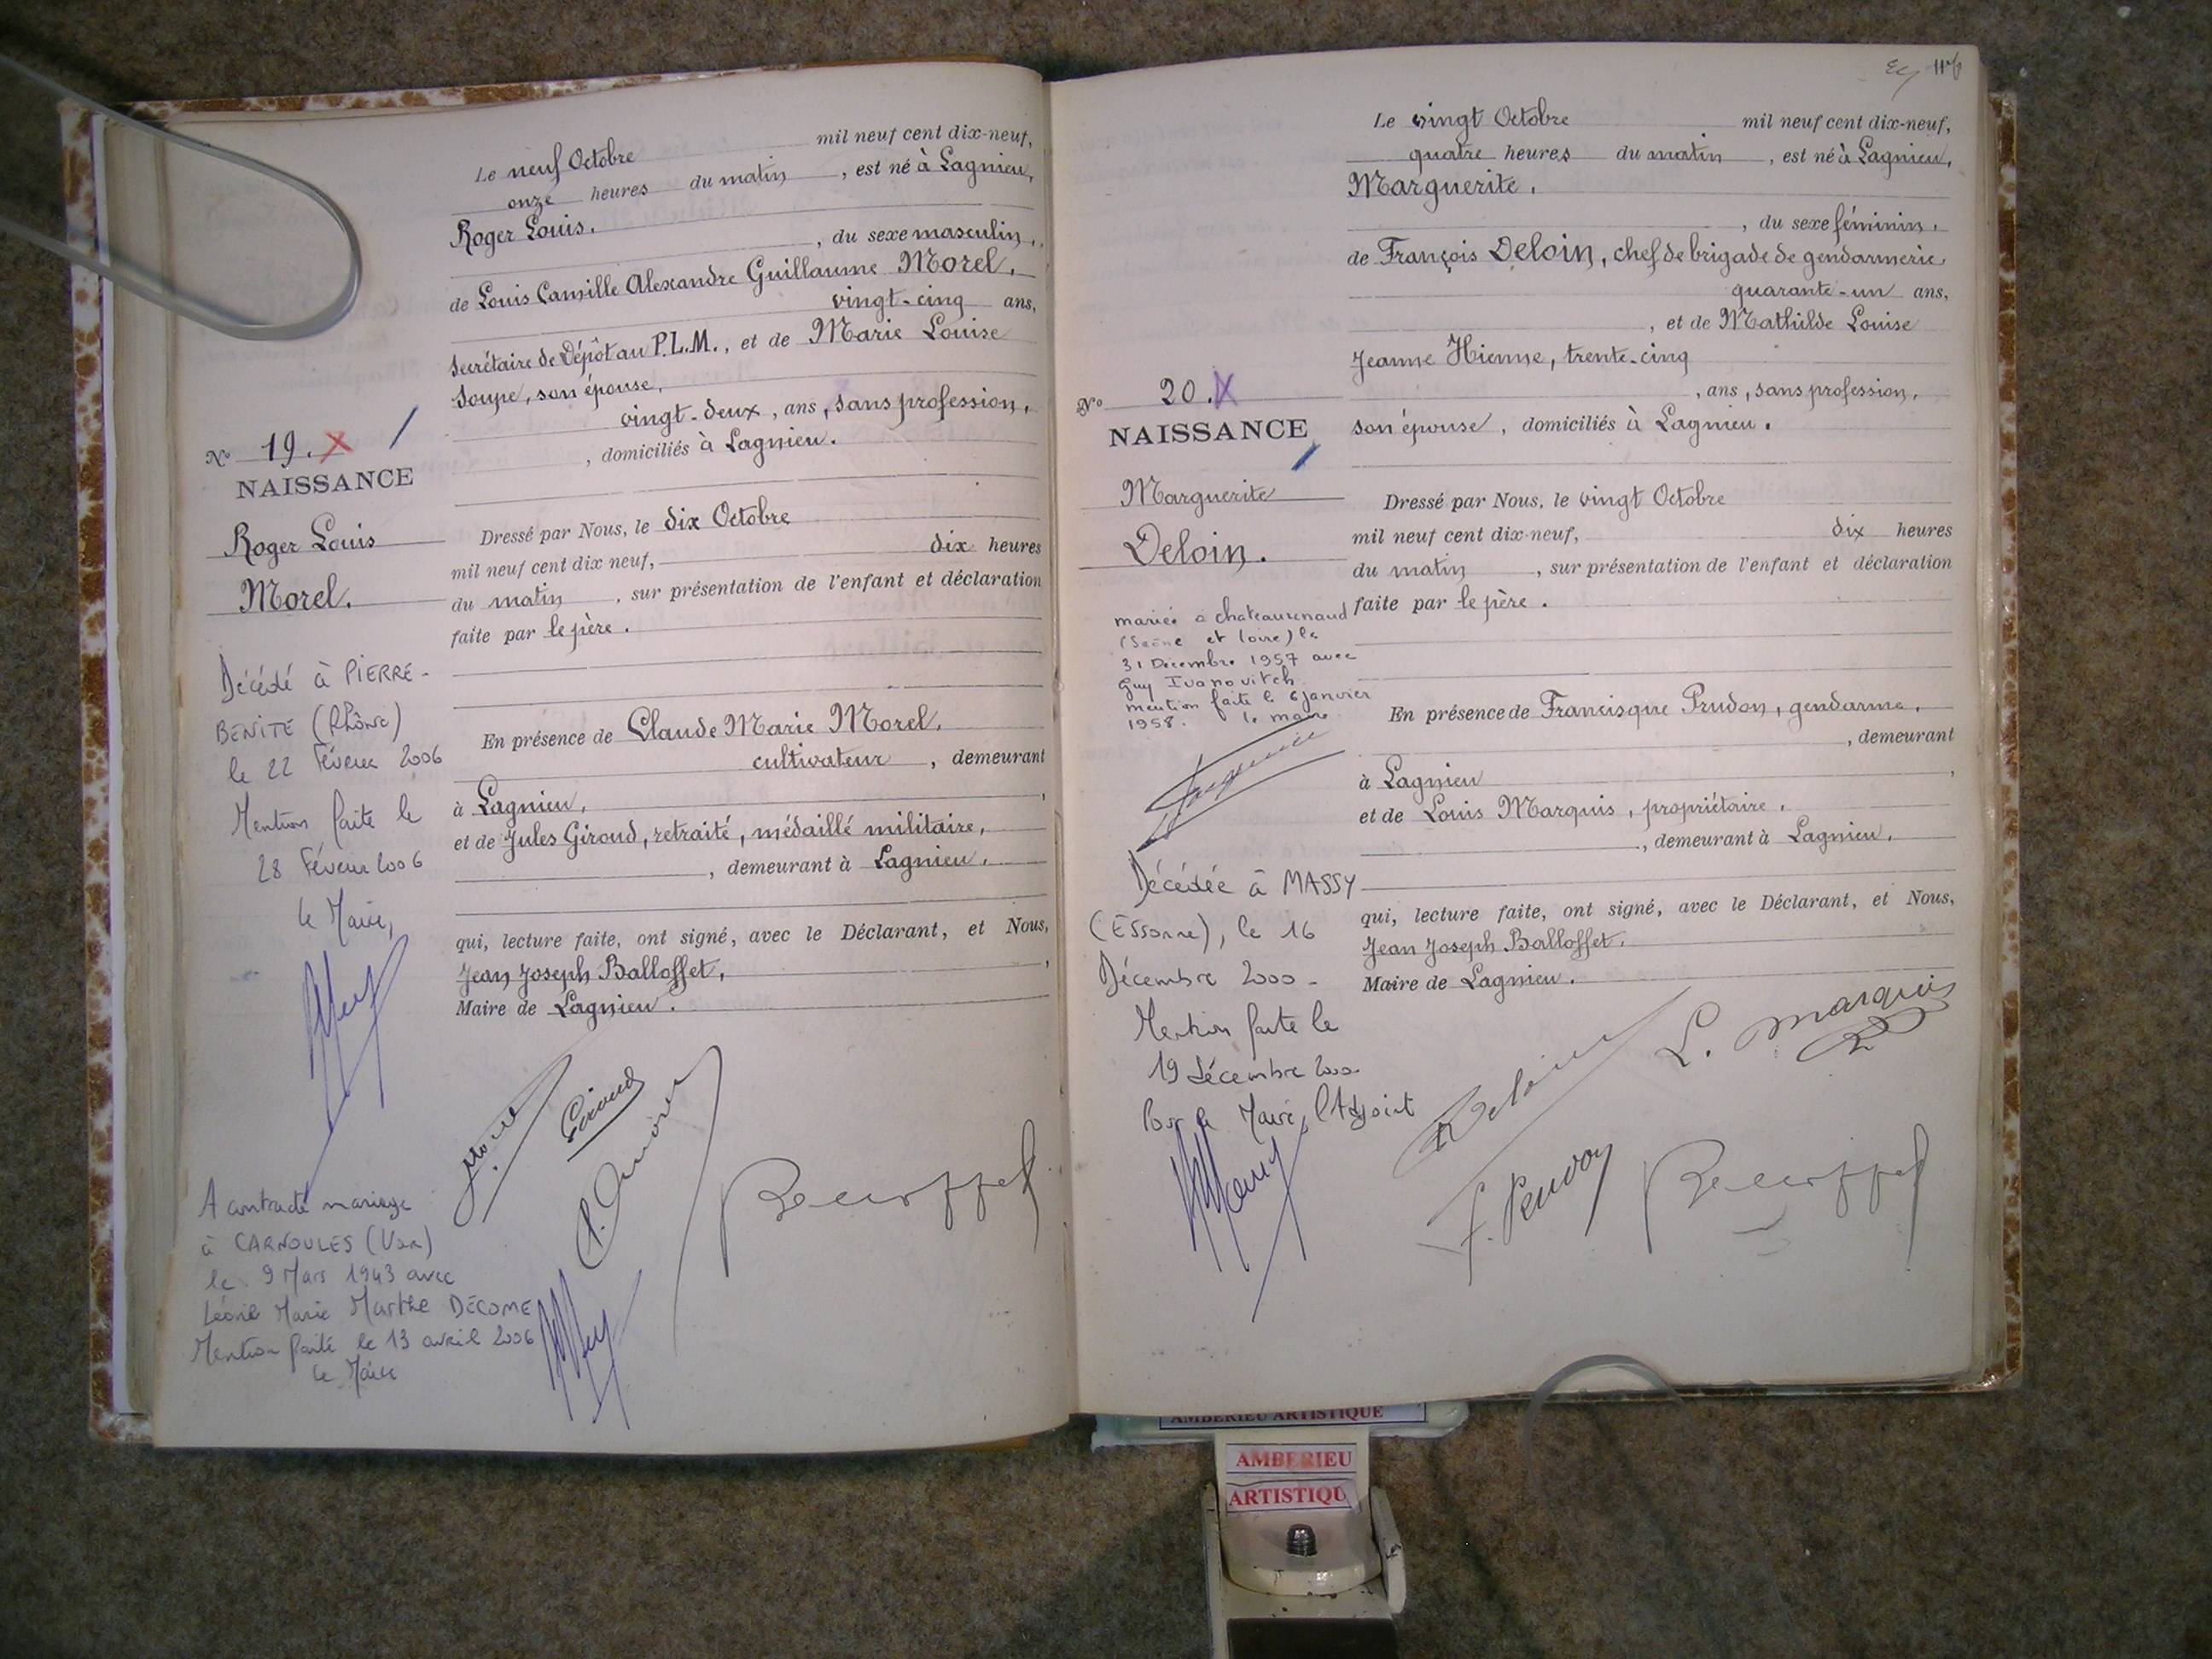 Le neuf Octobre mil neuf cent dix-neuf,
onze heures du matin, est né à Lagnieu,
Roger Louis.
, du sexe masculin,
de Louis Camille Alexandre Guillaume Morel,
vingt-cinq ans,
Secrétaire de Dépôt au P.L.M., et de Marie Louise
Soupe, son épouse,
vingt-deux, ans, sans profession,
, domiciliés à Lagnieu.
No 19.
NAISSANCE
Roger Louis
Morel.
Dressé par Nous, le dix Octobre
mil neuf cent dix neuf, dix heures
du matin, sur présentation de l'enfant et déclaration
faite par le père.
Décédé à PIERRE-
BENITE (Rhône)
le 22 Février 2006
Mention faite le
28 Février 2006
le Maire,
En présence de Claude Marie Morel,
cultivateur, demeurant
à Lagnieu,
et de Jules Giroud, retraité, médaillé militaire,
, demeurant à Lagnieu,
qui, lecture faite, ont signé, avec le Déclarant, et Nous,
Jean Joseph Balloffet,
Maire de Lagnieu.
Morel
Giroud
A contracté mariage
à CARNOULES (Var)
le 9 Mars 1943 avec
Léonie Marie Marthe DÉCOME
Mention faite le 13 avril 2006
le Maire
Le vingt Octobre mil neuf cent dix-neuf,
quatre heures du matin, est né à Lagnieu,
Marguerite.
, du sexe féminin,
de François Deloin, chef de brigade de gendarmerie
quarante-un ans,
, et de Mathilde Louise
Jeanne Hienne, trente-cinq
, ans, sans profession,
son épouse, domiciliés à Lagnieu.
No 20.
NAISSANCE
Marguerite
Deloin.
Dressé par Nous, le vingt Octobre
mil neuf cent dix-neuf, dix heures
du matin, sur présentation de l'enfant et déclaration
faite par le père.
mariée a chateaurenaud
(Saône et loire) le
31 Decembre 1957 avec
Guy Ivanovitch
mention faite le 6 janvier
1958. le maire
En présence de Francisque Prudon, gendarme,
, demeurant
à Lagnieu
et de Louis Marquis, propriétaire,
, demeurant à Lagnieu,
Décédée à MASSY
(Essonne), le 16
Décembre 2000-
Mention faite le
19 Décembre 2000
Pour le Maire, l'Adjoint
qui, lecture faite, ont signé, avec le Déclarant, et Nous,
Jean Joseph Balloffet,
Maire de Lagnieu.
Deloin
L. Marquis
AMBERIEU ARTISTIQUE
AMBERIEU
ARTISTIQU